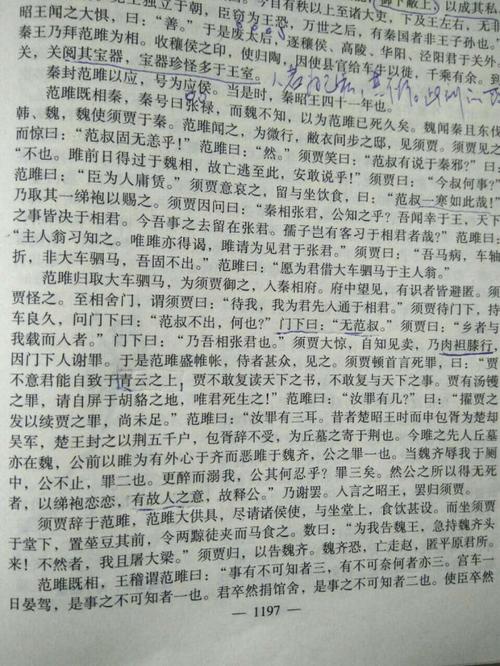 昭王闻之大惧，曰："善。"于是废太后，逐穰侯、高陵、华阳、泾阳君于关外。
秦王乃拜范雎为相。收穰侯之印，使归陶，因使县官给车牛以徙，千乘有余。
关，关阅其宝器，宝器珍怪多于王室。
秦封范雎以应，号为应侯。当是时，秦昭王四十一年也。
范雎既相秦，秦号曰张禄，而魏不知，以为范雎已死久矣。魏闻秦且东伐
韩、魏，魏使须贾于秦。范雎闻之，为微行，敝衣间步之邸，见须贾。须贾见之
而惊曰："范叔固无恙乎！"范雎曰："然。"须贾笑曰："范叔有说于秦邪？"曰：
"不也。雎前日得过于魏相，故亡逃至此，安敢说乎！"须贾曰："今叔何事？"
范雎曰："臣为人庸赁。"须贾意哀之，留与坐饮食，曰："范叔一寒如此哉！"
乃取其一绨袍以赐之。须贾因问曰："秦相张君，公知之乎？吾闻幸于王，天下
之事皆决于相君。今吾事之去留在张君。孺子岂有客习于相君者哉？"范雎曰：
"主人翁习知之。唯雎亦得谒，雎请为见君于张君。"须贾曰："吾马病，车轴
折，非大车驷马，吾固不出。"范雎曰："愿为君借大车驷马于主人翁。"
范雎归取大车驷马，为须贾御之，入秦相府。府中望见，有识者皆避匿。须
贾怪之。至相舍门，谓须贾曰："待我，我为君先入通于相君。"须贾待门下，持
车良久，问门下曰："范叔不出，何也？"门下曰："无范叔。"须贾曰："乡者与
我载而入者。"门下曰："乃吾相张君也。"须贾大惊，自知见卖，乃肉袒膝行，
因门下人谢罪。于是范雎盛帷帐，侍者甚众，见之。须贾顿首言死罪，曰："贾
不意君能自致于青云之上，贾不敢复读天下之书，不敢复与天下之事。贾有汤镬
之罪，请自屏于胡貉之地，唯君死生之！"范雎曰："汝罪有几？"曰："擢贾之
发以续贾之罪，尚未足。"范雎曰："汝罪有三耳。昔者楚昭王时而申包胥为楚却
吴军，楚王封之以荆五千户，包胥辞不受，为丘墓之寄于荆也。今雎之先人丘墓
亦在魏，公前以雎为有外心于齐而恶雎于魏齐，公之罪一也。当魏齐辱我于厕
中，公不止，罪二也。更醉而溺我，公其何忍乎？罪三矣。然公之所以得无死
者，以绨袍恋恋，有故人之意，故释公。"乃谢罢。入言之昭王，罢归须贾。
须贾辞于范雎，范雎大供具，尽请诸侯使，与坐堂上，食饮甚设。而坐须贾
于堂下，置莝豆其前，令两黥徒夹而马食之。数曰："为我告魏王，急持魏齐头
来！不然者，我且屠大梁。"须贾归，以告魏齐。魏齐恐，亡走赵，匿平原君所。
范雎既相，王稽谓范雎曰："事有不可知者三，有不可奈何者亦三。宫车一
日晏驾，是事之不可知者一也。君卒然捐馆舍，是事之不可知者二也。使臣卒然
— 1197 —